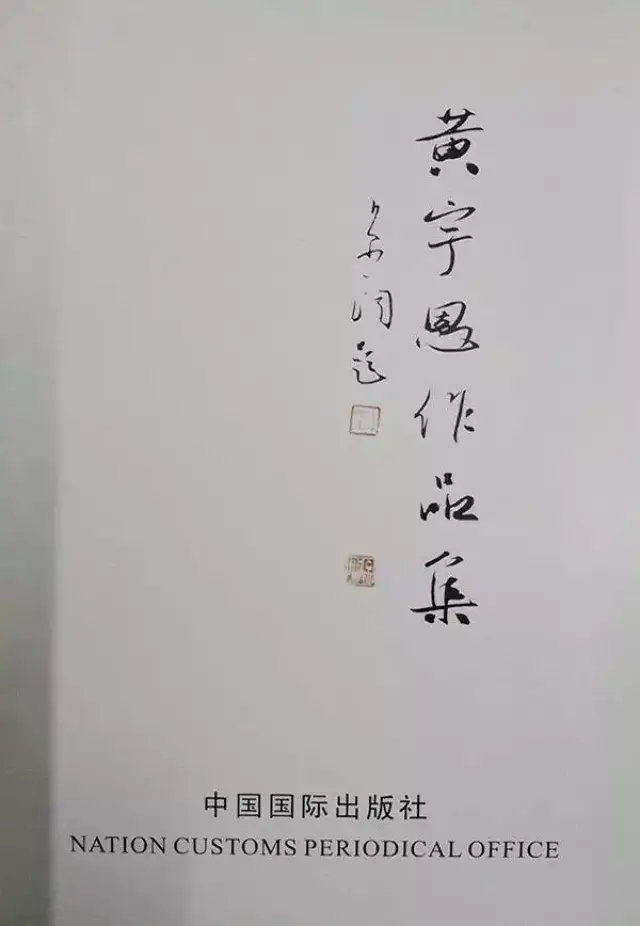 黄宇恩作品集
题
中国国际出版社
NATION CUSTOMS PERIODICAL OFFICE